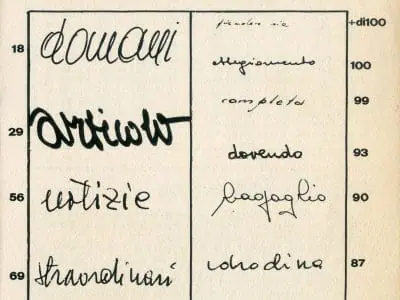 +di100
18 domani
atteggiamento 100
completa 99
29 articolo
dovendo 93
56 notizie bagaglio 90
69 straordinari 87